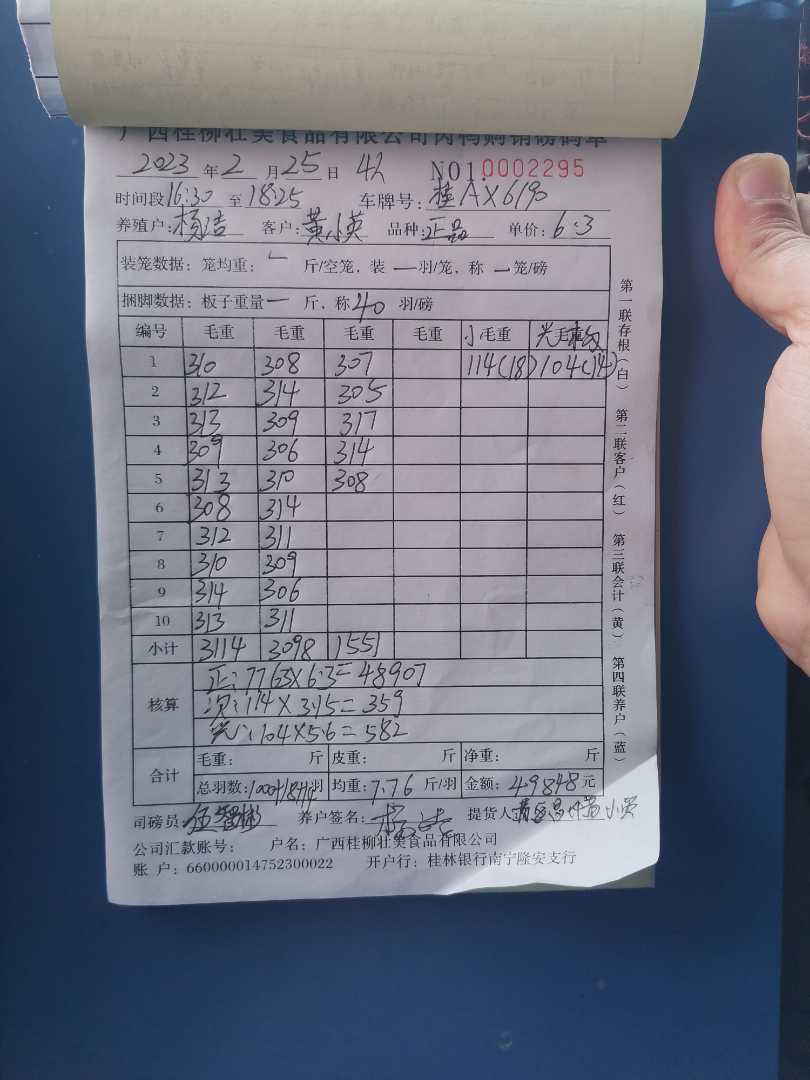 广西桂柳壮美食品有限公司肉鸭购销磅码单
2023 年 2 月 25 日 NO1.0002295
时间段16:30 至 18:25 车牌号:桂AX6190
养殖户:杨洁 客户:黄小英 品种:正品 单价:6.3
装笼数据:笼均重: 一 斤/空笼,装 一 羽/笼,称 一 笼/磅
捆脚数据:板子重量 一 斤,称 40 羽/磅
编号 毛重 毛重 毛重 毛重 小毛重 光毛
1 310 308 307 114(18) 104(14)
2 312 314 305
3 313 309 317
4 309 306 314
5 313 310 308
6 308 314
7 312 311
8 310 309
9 314 306
10 313 311
小计 3114 3098 1551
核算 正:7763×6.3=48907
次:114×3.15=359
光:104×5.6=582
合计 毛重: 斤 皮重: 斤 净重: 斤
总羽数:1000+18+14羽 均重:7.76 斤/羽 金额:49848元
司磅员: 养户签名:杨洁 提货人:
公司汇款账号: 户名:广西桂柳壮美食品有限公司
账 户:660000014752300022 开户行:桂林银行南宁隆安支行
第一联存根(白) 第二联客户(红) 第三联会计(黄) 第四联养户(蓝)